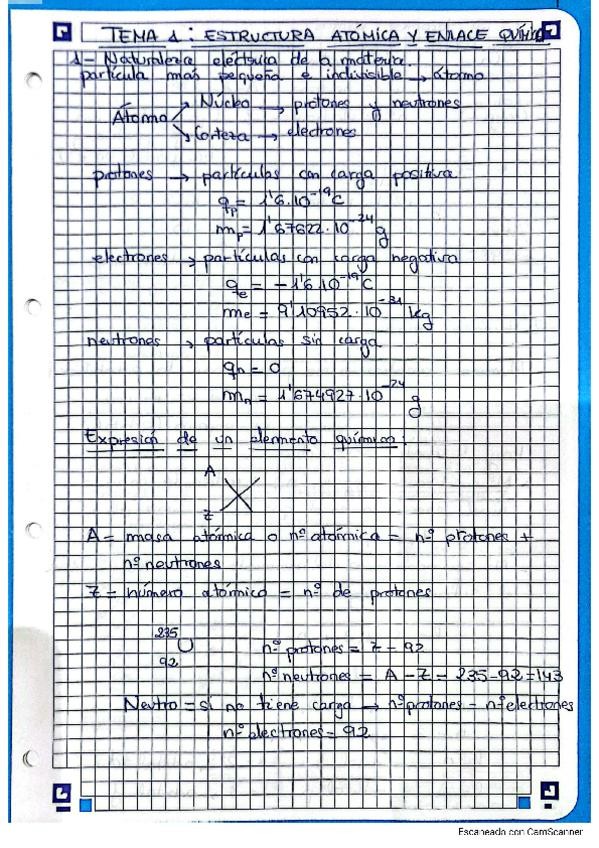 TEMA 1: ESTRUCTURA ATÓMICA Y ENLACE QUÍMICO
1- Naturaleza eléctrica de la materia.
partícula más pequeña e indivisible → átomo
Núcleo → protones y neutrones
Átomo
Corteza → electrones
protones → partículas con carga positiva
qp = 1'6·10⁻¹⁹C
mp = 1'67622·10⁻²⁴ g
electrones → partículas con carga negativa
qe = -1'6·10⁻¹⁹C
me = 9'10952·10⁻³¹ kg
neutrones → partículas sin carga
qn = 0
mn = 1'674927·10⁻²⁴ g
Expresión de un elemento químico:
A
X
Z
A = masa atómica o nº atómica = nº protones +
nº neutrones
Z = número atómico = nº de protones
235
U
92
nº protones = Z = 92
nº neutrones = A - Z = 235-92=143
Neutro = si no tiene carga → nº protones = nº electrones
nº electrones = 92
Escaneado con CamScanner